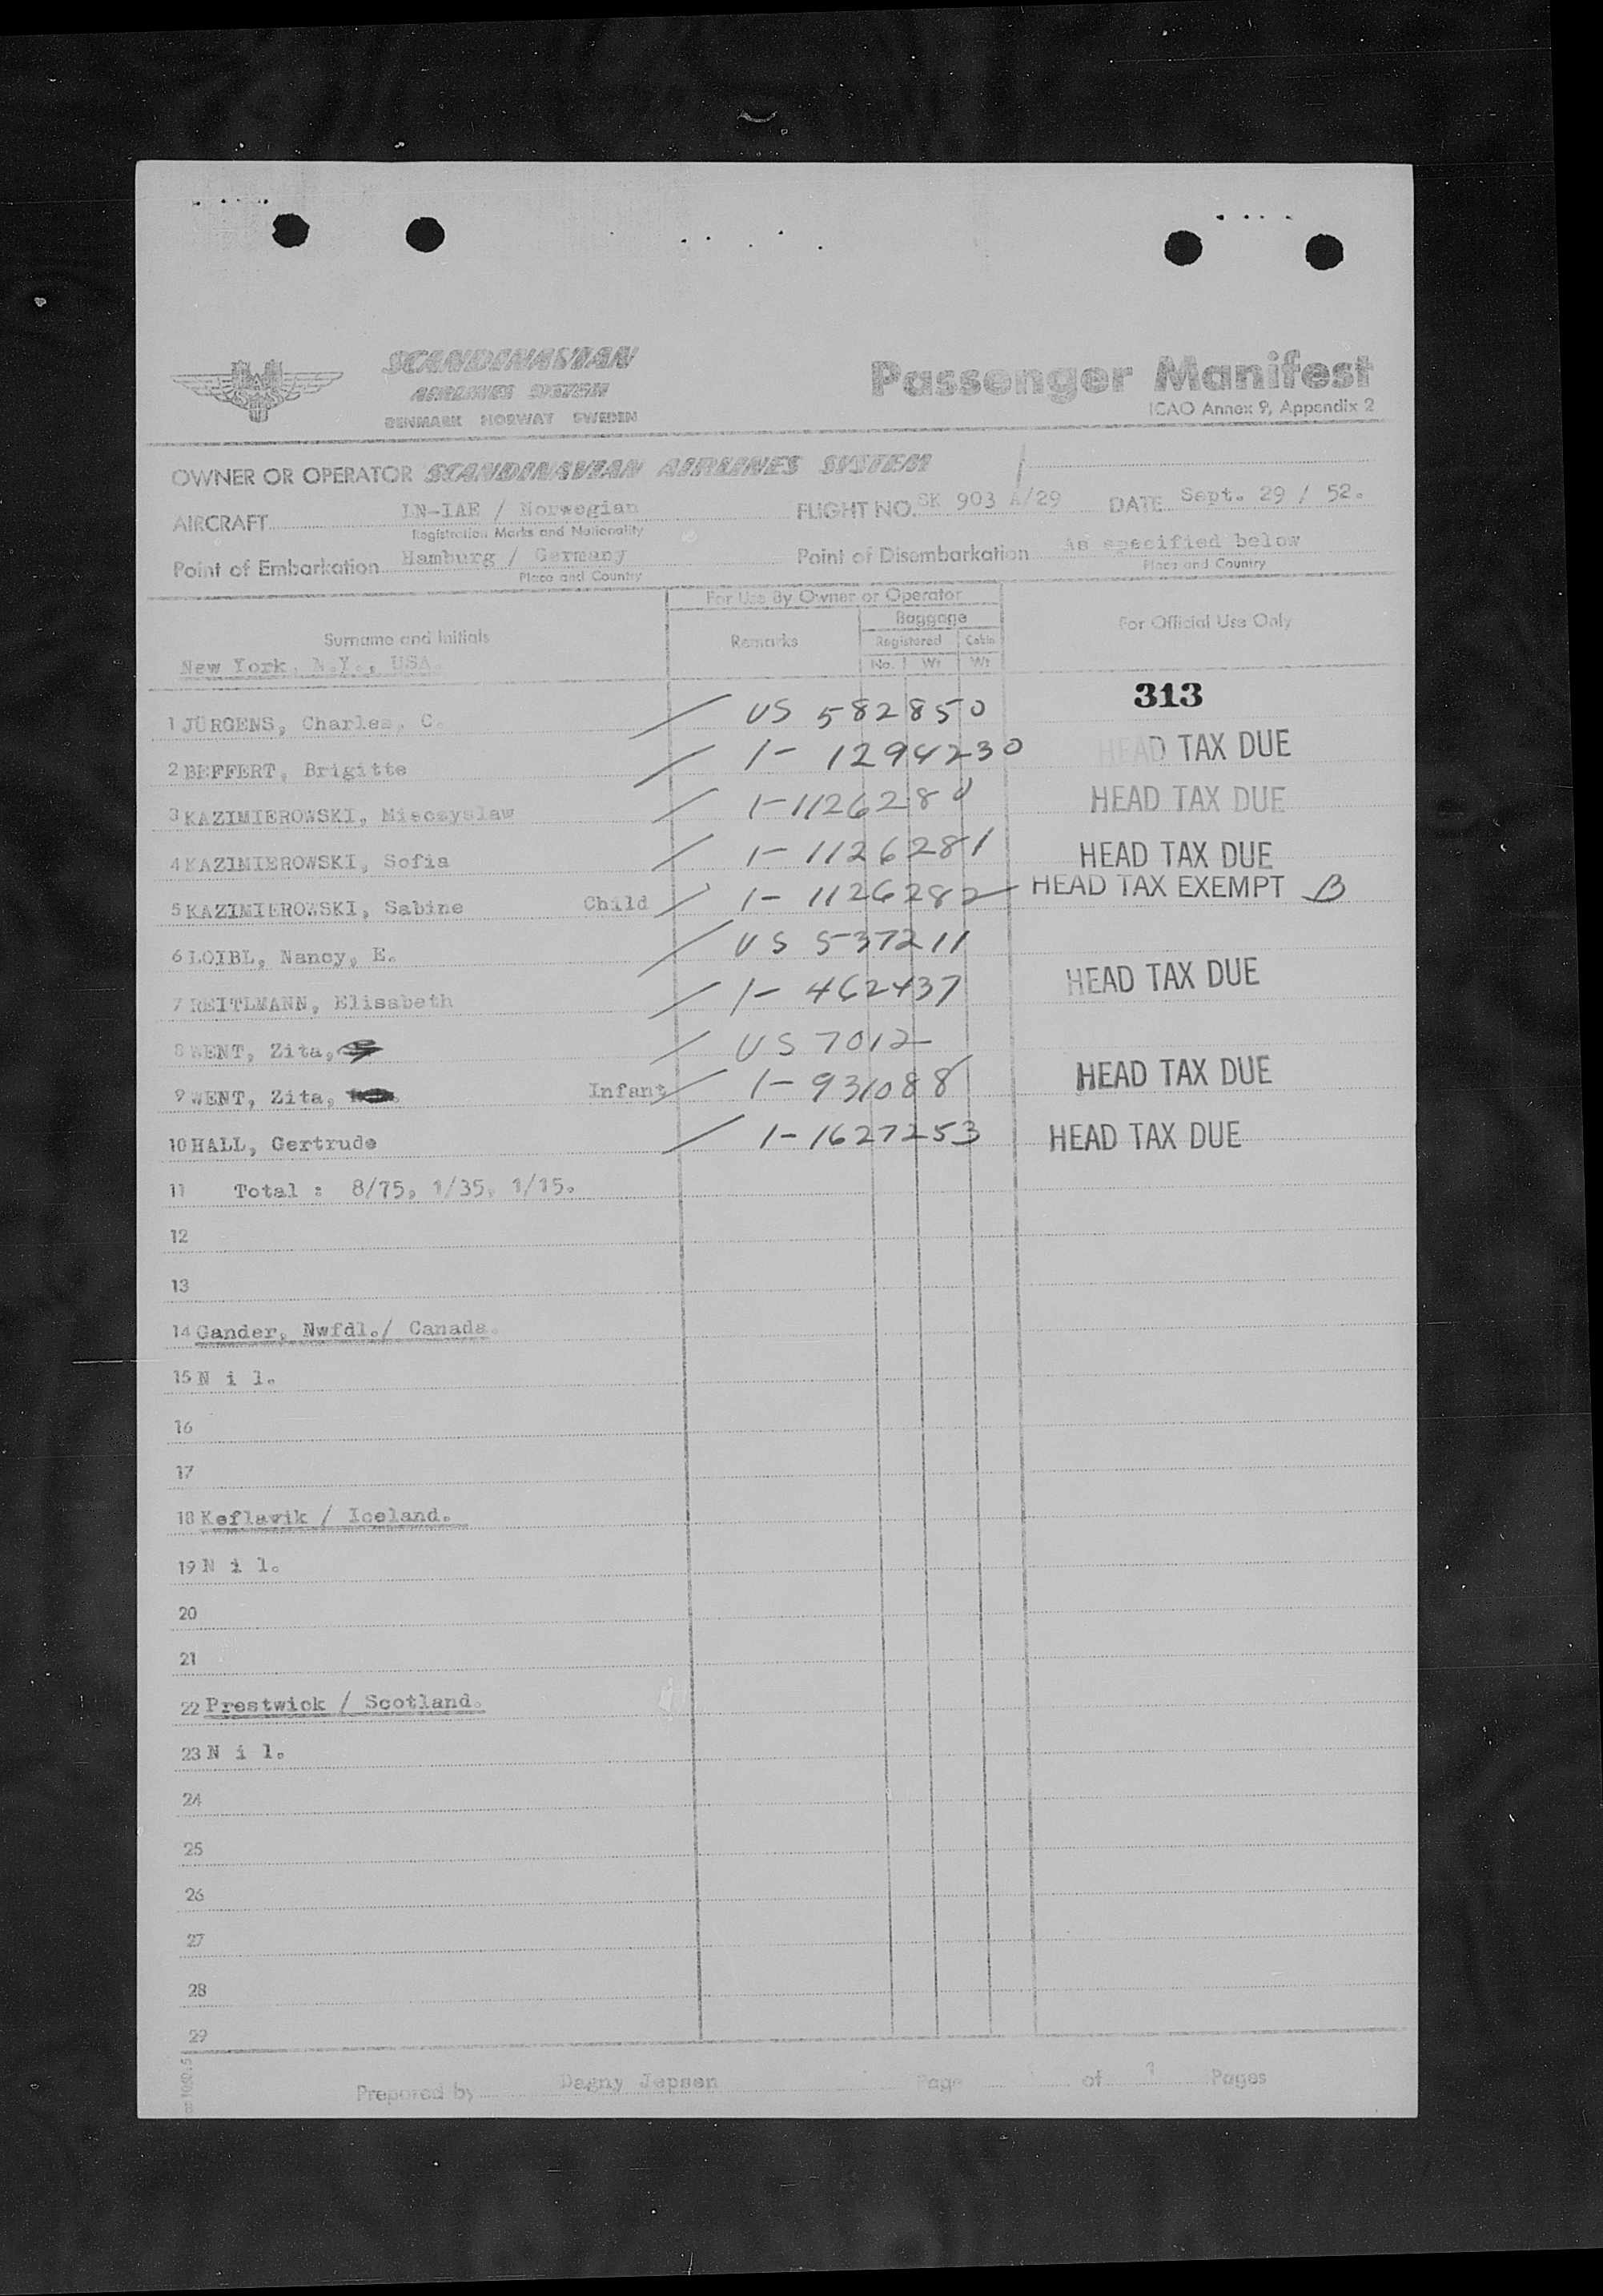 SCANDINAVIAN
AIRLINES SYSTEM
DENMARK NORWAY SWEDEN
Passenger Manifest
ICAO Annex 9, Appendix 2
OWNER OR OPERATOR SCANDINAVIAN AIRLINES SYSTEM
AIRCRAFT LN-IAE / Norwegian FLIGHT NO. SK 903 A/29 DATE Sept. 29 / 52.
Registration Marks and Nationality
Point of Embarkation Hamburg / Germany Point of Disembarkation As specified below
Place and Country Place and Country
For Use By Owner or Operator
Baggage
Surname and Initials Remarks Registered Cabin For Official Use Only
No. Wt Wt
New York, N.Y., USA.
313
1 JÜRGENS, Charles, C. US 582850
2 BEFFERT, Brigitte 1- 1294230 HEAD TAX DUE
3 KAZIMIEROWSKI, Mieczyslaw 1-1126280 HEAD TAX DUE
4 KAZIMIEROWSKI, Sofia 1- 1126281 HEAD TAX DUE
5 KAZIMIEROWSKI, Sabine Child 1- 1126282 HEAD TAX EXEMPT B
6 LOIBL, Nancy, E. US 537211
7 REITLMANN, Elisabeth 1- 462437 HEAD TAX DUE
8 WENT, Zita, US 7012
9 WENT, Zita, Infant 1- 931088 HEAD TAX DUE
10 HALL, Gertrude 1-1627253 HEAD TAX DUE
11 Total : 8/75, 1/35, 1/15.
12
13
14 Gander, Nwfdl./ Canada.
15 N i l.
16
17
18 Keflavik / Iceland.
19 N i l.
20
21
22 Prestwick / Scotland.
23 N i l.
24
25
26
27
28
29
Prepared by Dagny Jepsen Page of 1 Pages